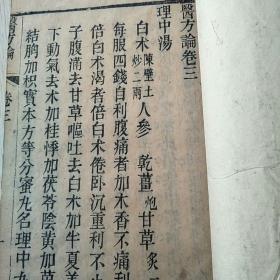 醫方論卷三
理中湯
白朮陳壁土炒二兩人參 乾薑炮甘草炙
每服四錢自利腹痛者加木香不痛利
倍白朮渴者倍白朮倦臥沉重利不
子腹滿去甘草嘔吐去白朮加半夏
下動氣去朮加桂悸加茯苓陰黃加茵
結胸加枳實本方等分蜜丸名理中丸
卷三